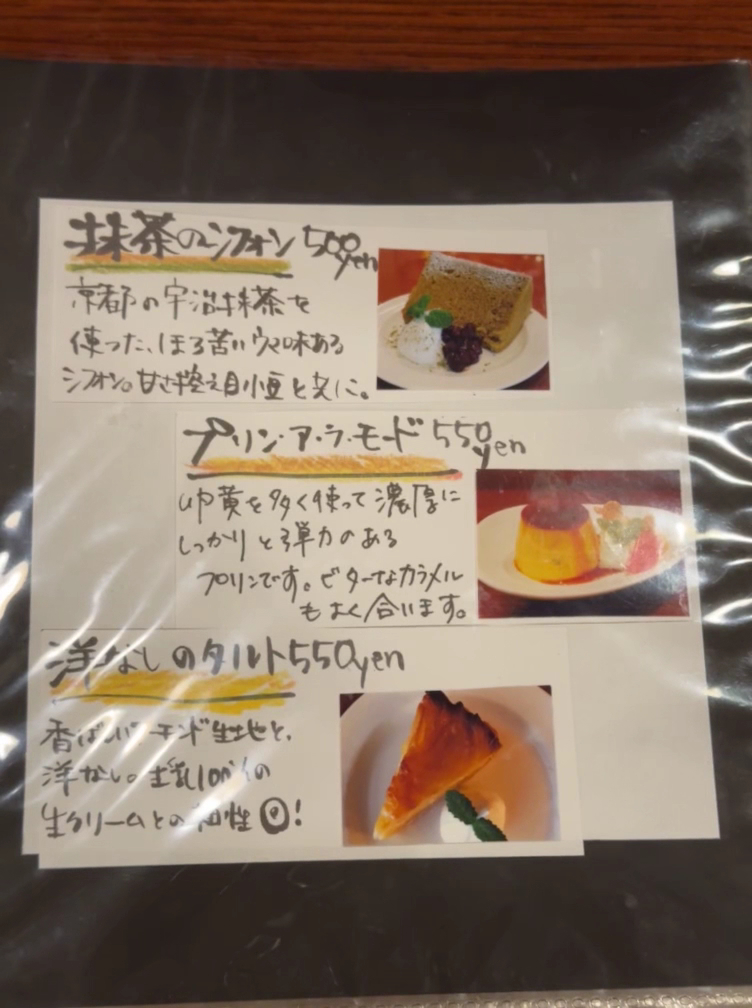 抹茶のシフォン 500yen
京都の宇治抹茶を
使った、ほろ苦い
シフォン。甘さ控え目小豆と共に。
プリン・ア・ラ・モード 550yen
卵黄を多く使って濃厚に
しっかりと弾力のある
プリンです。ビターなカラメル
もよく合います。
洋なしのタルト550yen
香ばしいアーモンド生地と、
洋なし。生乳100%の
生クリームとの相性◎!